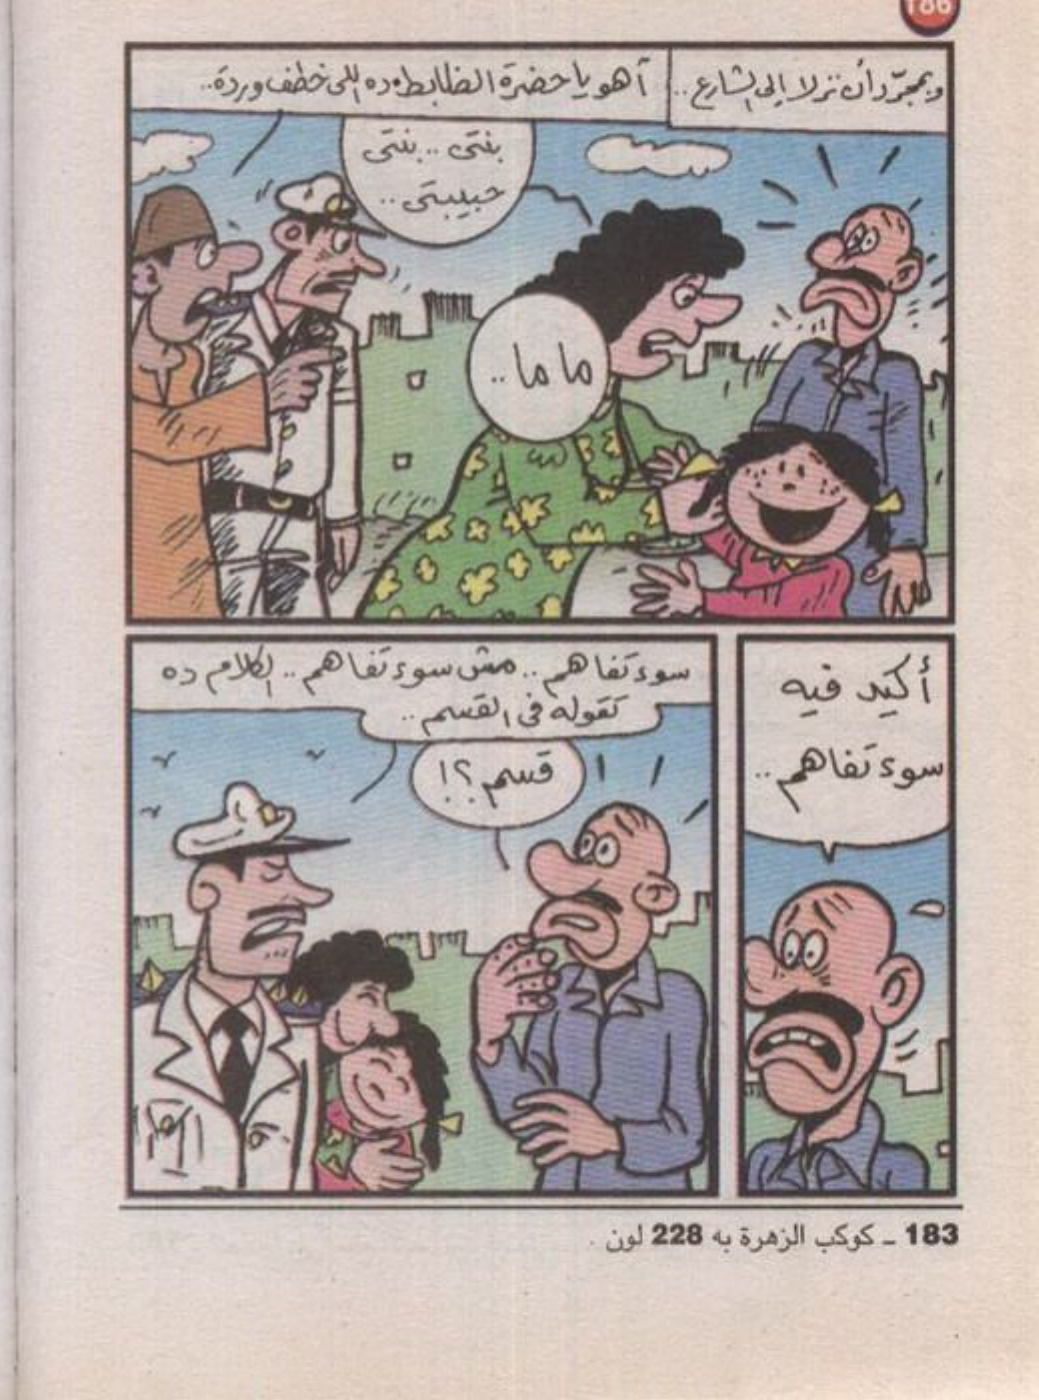 186
وبمجرّد أن نزلا إلى الشارع..
آهو يا حضرة الظابط، ده اللى خطف وردة..
بنتى.. بنتى
حبيبتى..
ماما..
أكيد فيه
سوء تفاهم..
سوء تفاهم.. مش سوء تفاهم.. الكلام ده
تقوله فى القسم..
قسم؟!
183 ـ كوكب الزهرة به 228 لون .